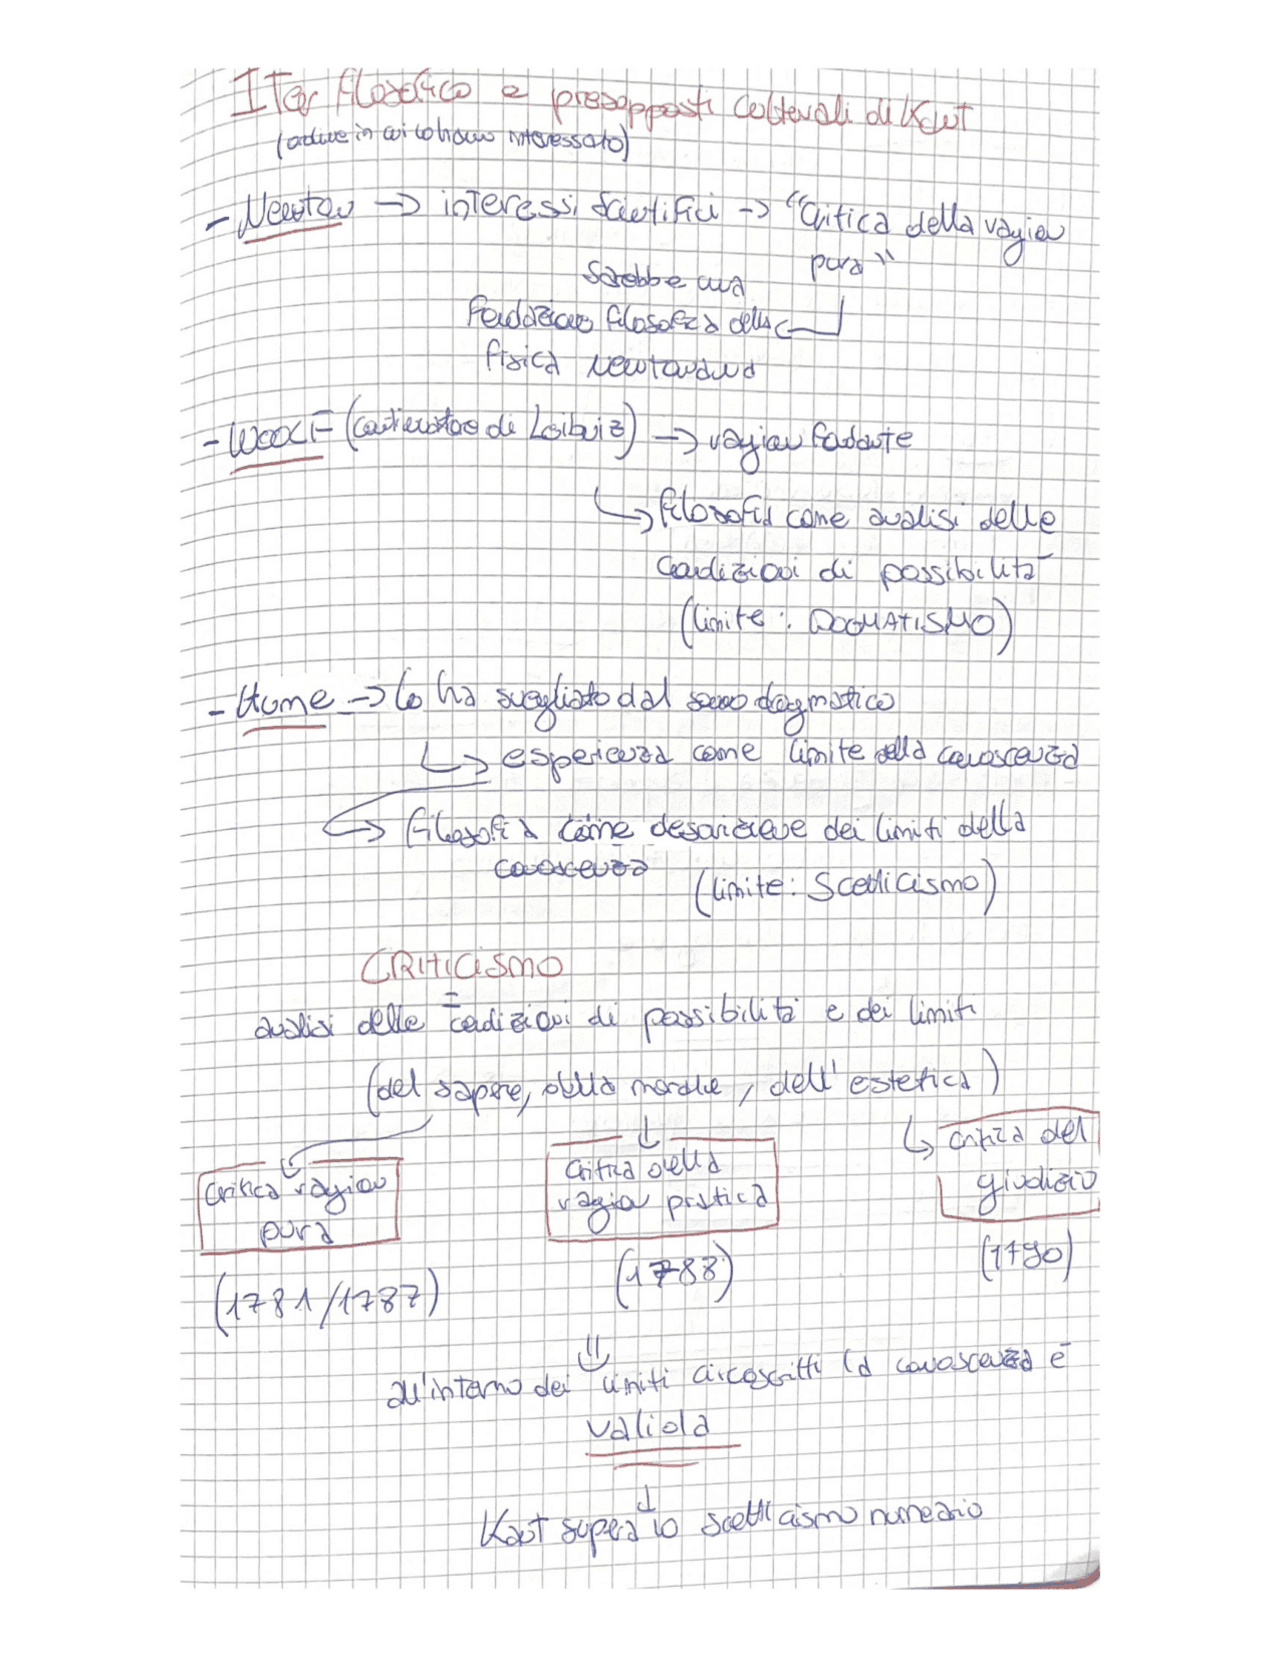 Iter filosofico e presupposti culturali di Kant
(ordine in cui lo hanno interessato)
- Newton → interessi scientifici → "Critica della ragion
pura"
Sarebbe una
fondazione filosofica della
fisica newtoniana
- WOOLF (continuatore di Leibniz) → ragion fondante
↳ filosofia come analisi delle
condizioni di possibilità
(limite: DOGMATISMO)
- Hume → lo ha svegliato dal sonno dogmatico
↳ esperienza come limite della conoscenza
→ filosofia come descrizione dei limiti della
conoscenza
(limite: Scetticismo)
CRITICISMO
=
analisi delle condizioni di possibilità e dei limiti
(del sapere, della morale, dell'estetica)
↓
↳ critica del
giudizio
critica della
ragion pratica
critica ragion
pura
(1790)
(1788)
(1781/1787)
⇓
all'interno dei limiti circoscritti la conoscenza è
valida
↓
Kant supera lo scetticismo numeano